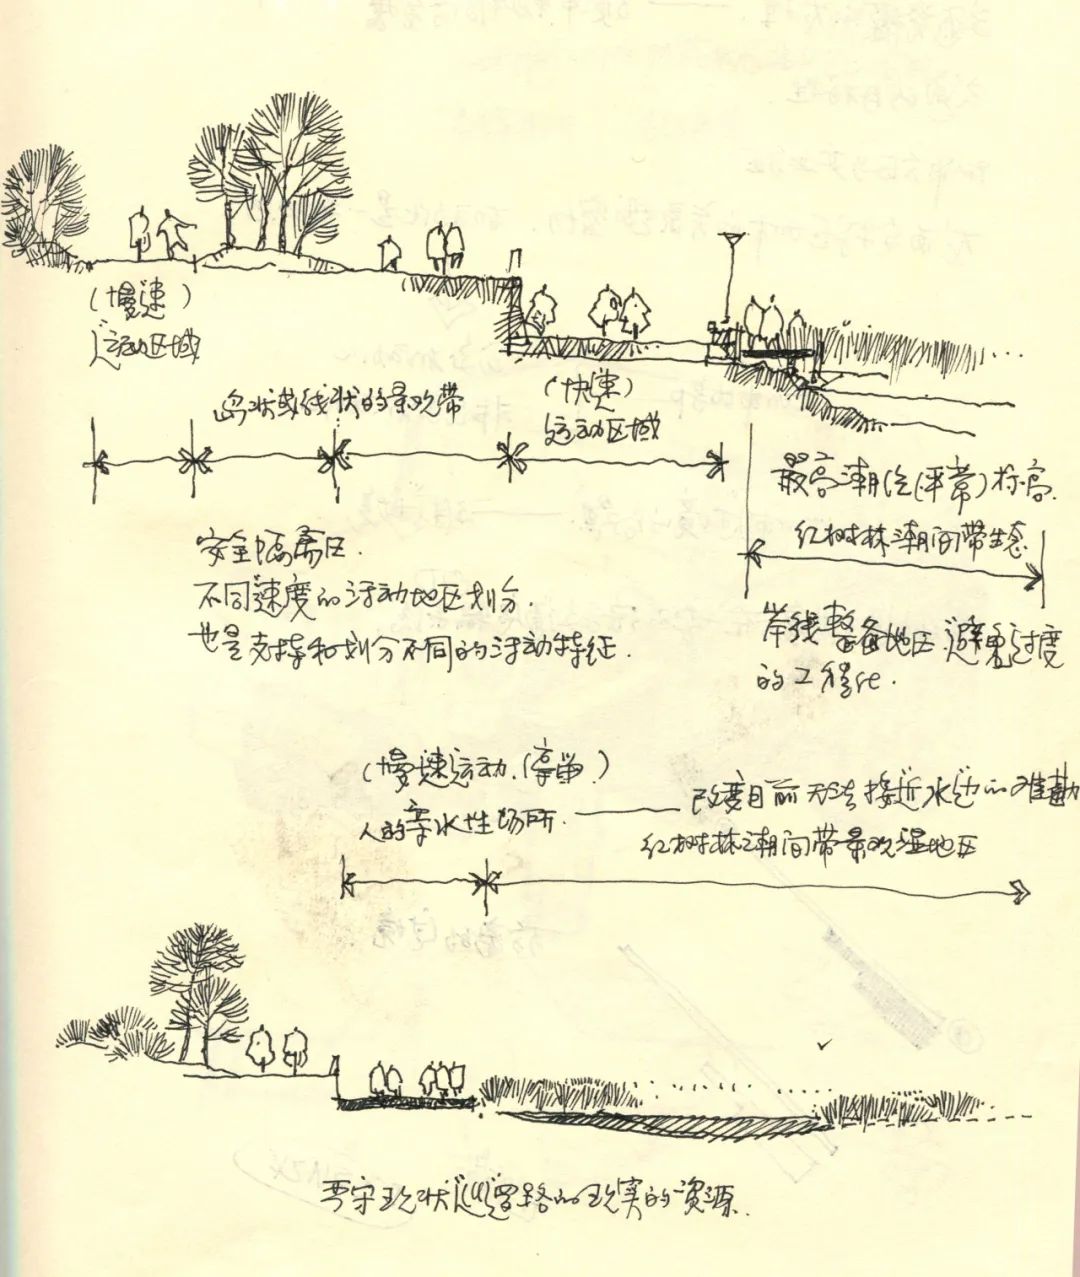 (慢速)
运动区域
岛状或线状的景观带
(快速)
运动区域
最高潮位(平常)标高.
红树林潮间带生态
安全隔离区.
不同速度的活动地区划分.
也是支持和划分不同的活动特征.
岸线整备地区.避免过度
的工程化.
(慢速运动.停单)
人的亲水性场所.
改变目前无法接近水边的难勘
红树林潮间带景观湿地区
严守现状 路的现实的资源.